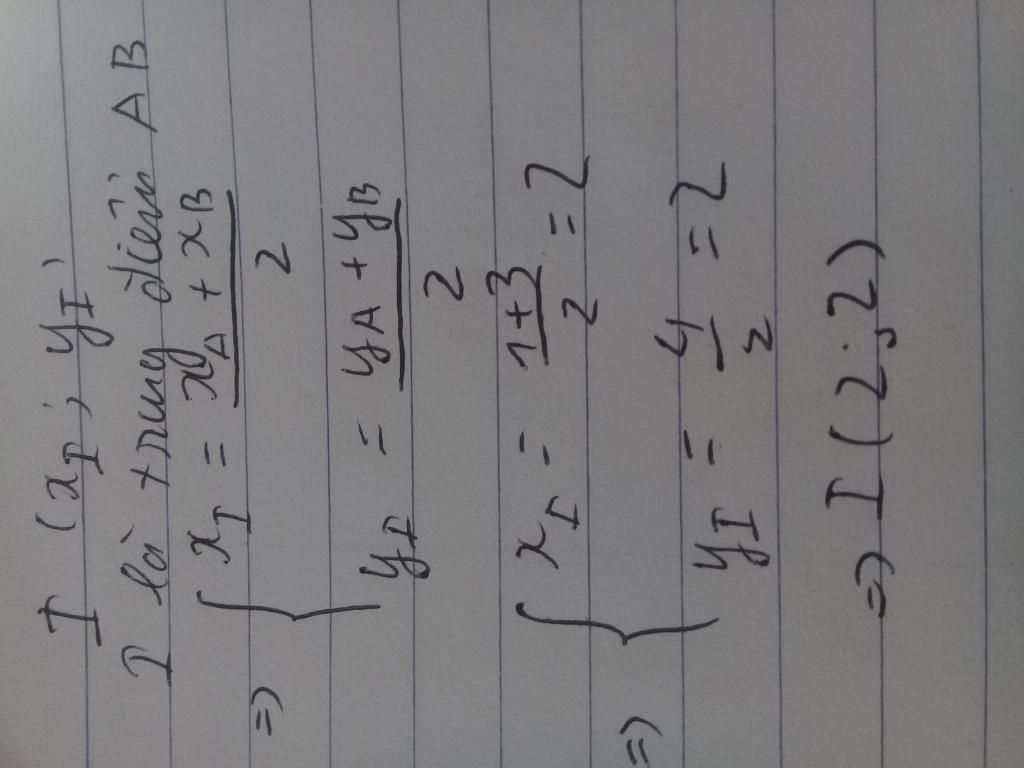 I (x_I; y_I)
I là trung điểm AB
=> { x_I = (x_A + x_B) / 2
y_I = (y_A + y_B) / 2
=> { x_I = (1+3) / 2 = 2
y_I = 4 / 2 = 2
=> I (2; 2)